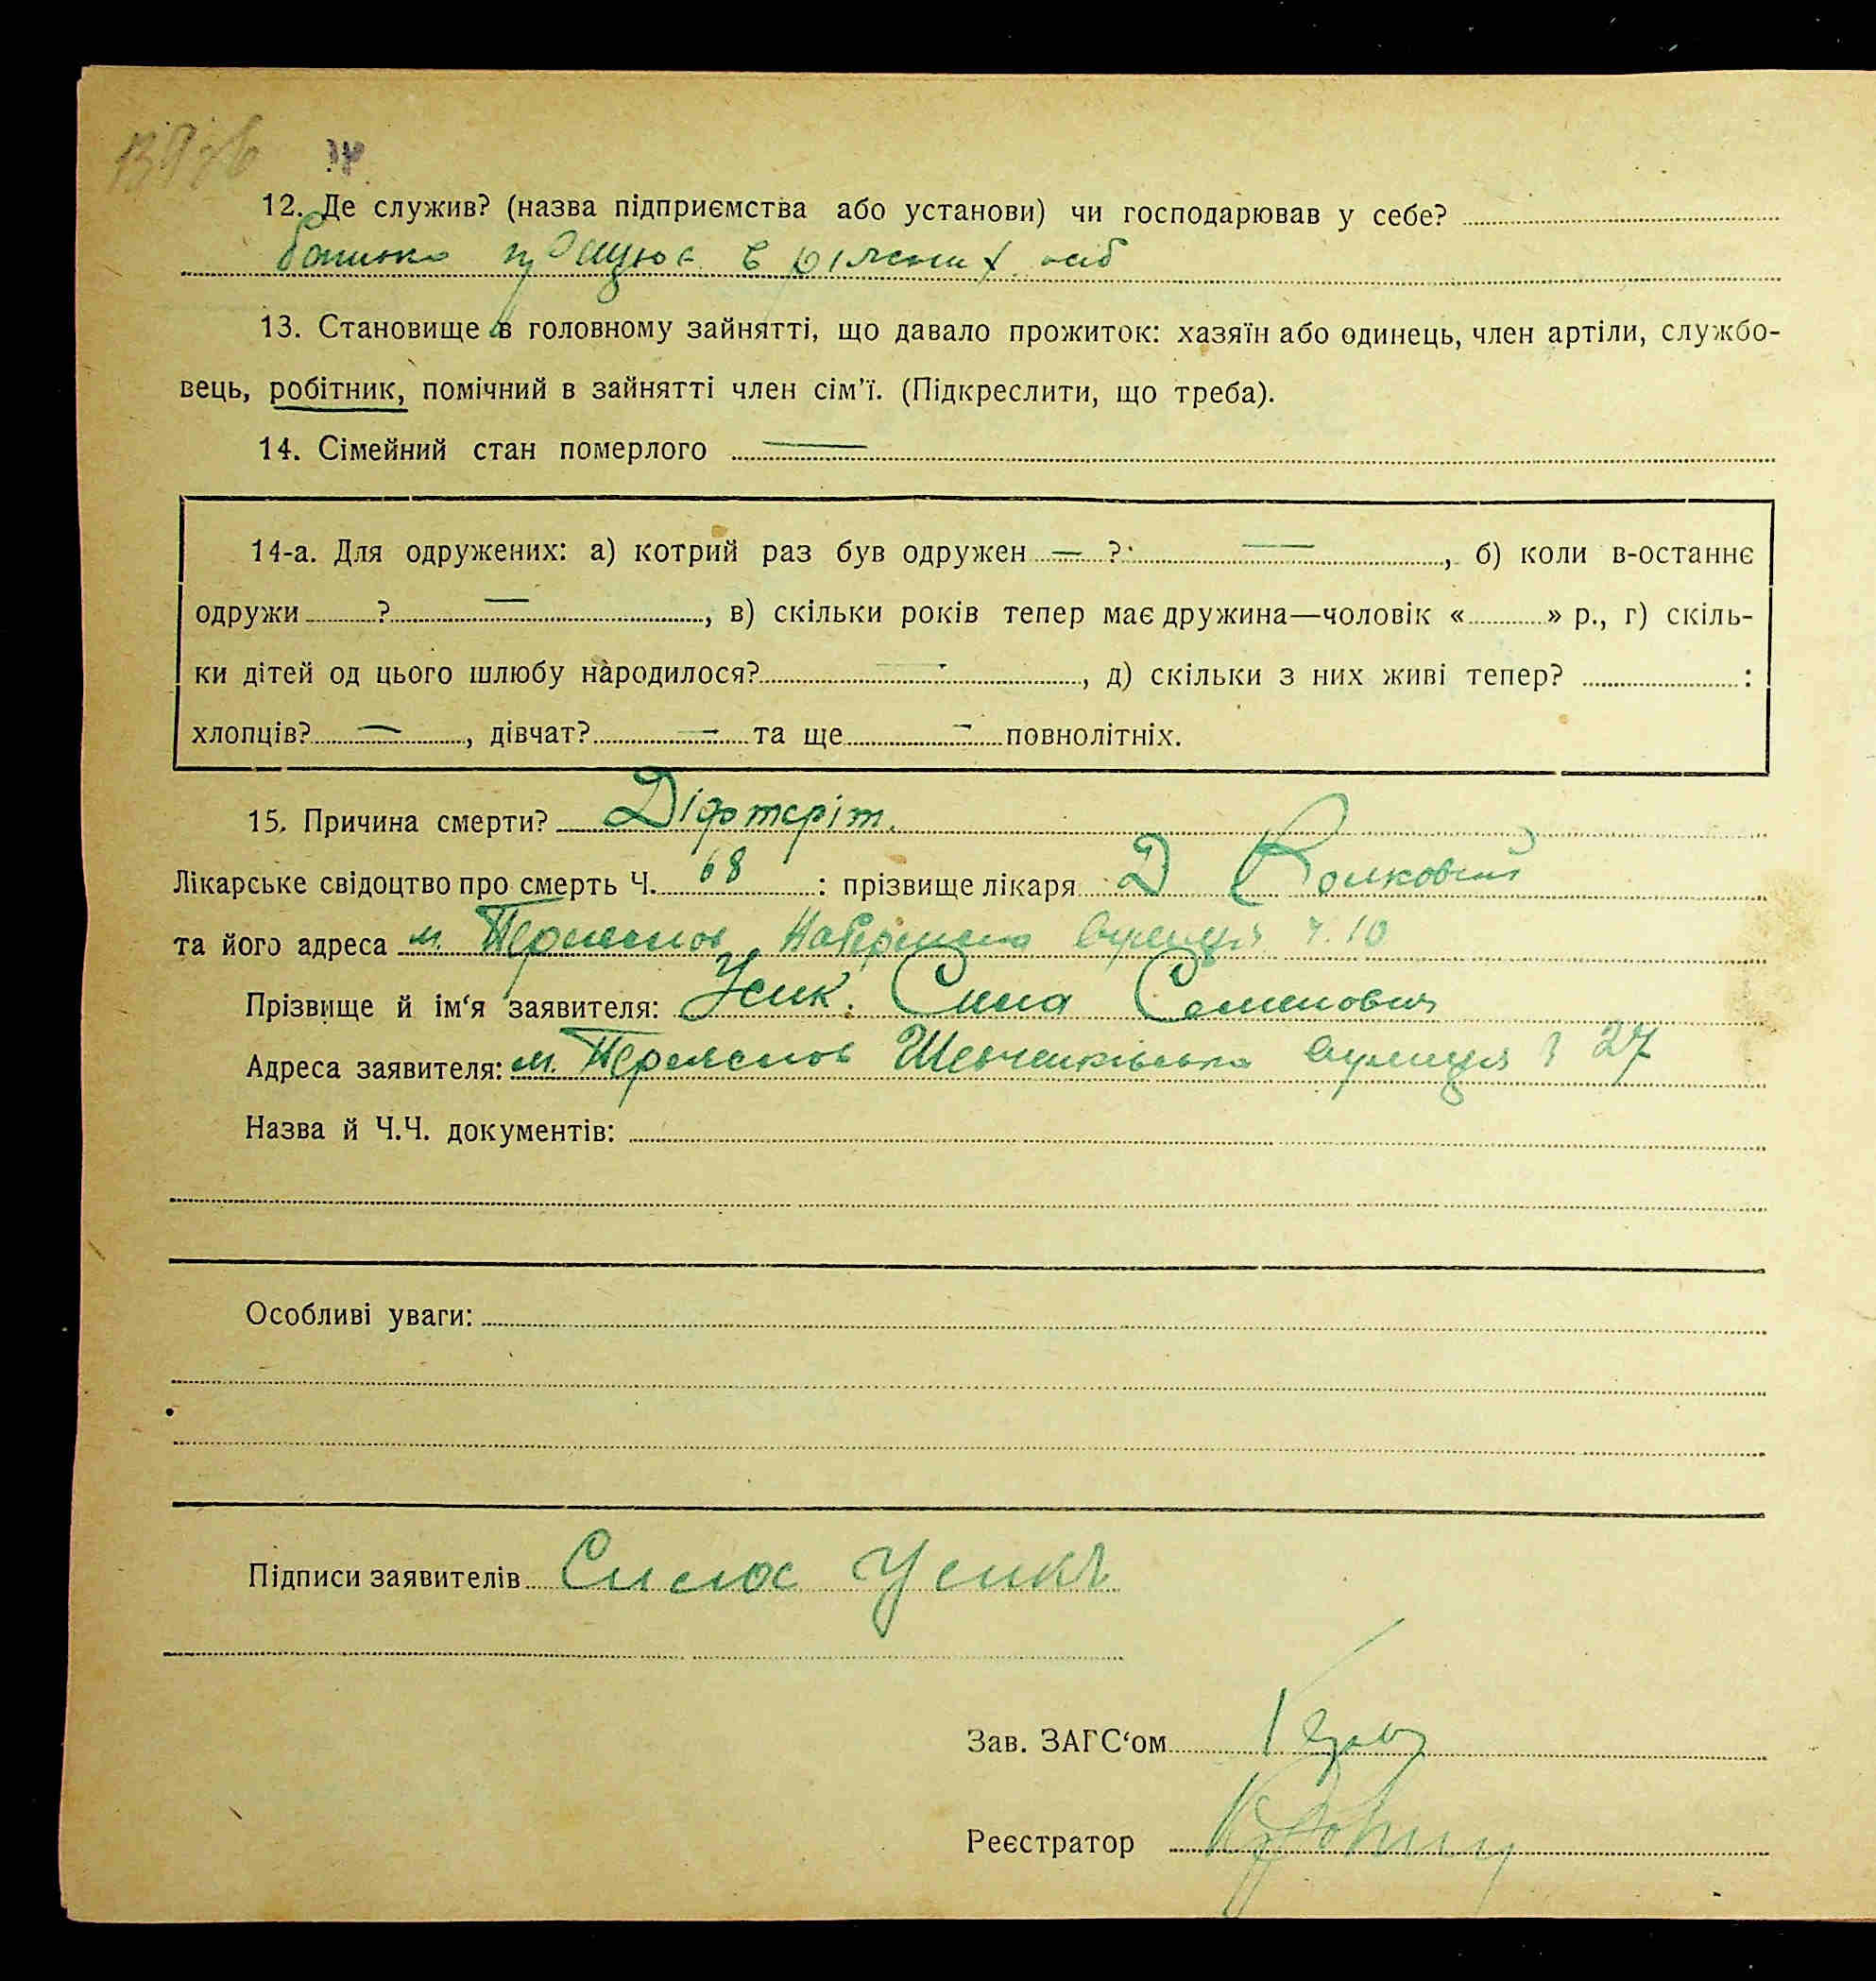 12. Де служив? (назва підприємства або установи) чи господарював у себе?
батько працює в ріжних осіб
13. Становище в головному зайнятті, що давало прожиток: хазяїн або одинець, член артіли, службо-
вець, робітник, помічний в зайнятті член сім'ї. (Підкреслити, що треба).
14. Сімейний стан померлого —
14-а. Для одружених: а) котрий раз був одружен — ? —, б) коли в-останнє
одружи ? —, в) скільки років тепер має дружина—чоловік « » р., г) скіль-
ки дітей од цього шлюбу народилося? —, д) скільки з них живі тепер? :
хлопців? —, дівчат? — та ще — повнолітніх.
15. Причина смерти? Діфтеріт.
Лікарське свідоцтво про смерть Ч. 68 : прізвище лікаря Д
та його адреса м. Переяслов вулиця ч. 10
Прізвище й ім'я заявителя: Усик Сила Семенович
Адреса заявителя: м. Переяслов Шевченківська вулиця 27
Назва й Ч.Ч. документів:
Особливі уваги:
Підписи заявителів Сила Усик
Зав. ЗАГС'ом
Реєстратор